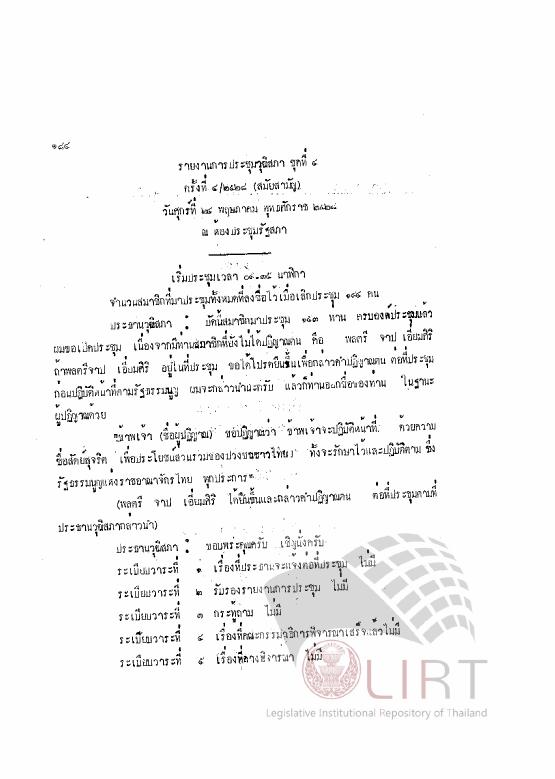 ๑๘๔
รายงานการประชุมวุฒิสภา ชุดที่ ๔
ครั้งที่ ๔/๒๕๒๘ (สมัยสามัญ)
วันศุกร์ที่ ๒๔ พฤษภาคม พุทธศักราช ๒๕๒๘
ณ ห้องประชุมรัฐสภา
เริ่มประชุมเวลา ๐๙.๓๕ นาฬิกา
จำนวนสมาชิกที่มาประชุมทั้งหมดที่ลงชื่อไว้เมื่อเลิกประชุม ๑๙๔ คน
ประธานวุฒิสภา : บัดนี้สมาชิกมาประชุม ๑๕๓ ท่าน ครบองค์ประชุมแล้ว
ผมขอเปิดประชุม เนื่องจากมีท่านสมาชิกที่ยังไม่ได้ปฏิญาณตน คือ พลตรี จาป เอี่ยมศิริ
ถ้าพลตรีจาป เอี่ยมศิริ อยู่ในที่ประชุม ขอได้โปรดยืนขึ้นเพื่อกล่าวคำปฏิญาณตน ต่อที่ประชุม
ก่อนปฏิบัติหน้าที่ตามรัฐธรรมนูญ ผมจะกล่าวนำนะครับ แล้วก็ท่านออกชื่อของท่าน ในฐานะ
ผู้ปฏิญาณด้วย
"ข้าพเจ้า (ชื่อผู้ปฏิญาณ) ขอปฏิญาณว่า ข้าพเจ้าจะปฏิบัติหน้าที่ ด้วยความ
ซื่อสัตย์สุจริต เพื่อประโยชน์ส่วนรวมของปวงชนชาวไทย ทั้งจะรักษาไว้และปฏิบัติตาม ซึ่ง
รัฐธรรมนูญแห่งราชอาณาจักรไทย ทุกประการ"
(พลตรี จาป เอี่ยมศิริ ได้ยืนขึ้นและกล่าวคำปฏิญาณตน ต่อที่ประชุมตามที่
ประธานวุฒิสภากล่าวนำ)
ประธานวุฒิสภา : ขอบพระคุณครับ เชิญนั่งครับ
ระเบียบวาระที่ ๑ เรื่องที่ประธานจะแจ้งต่อที่ประชุม ไม่มี
ระเบียบวาระที่ ๒ รับรองรายงานการประชุม ไม่มี
ระเบียบวาระที่ ๓ กระทู้ถาม ไม่มี
ระเบียบวาระที่ ๔ เรื่องที่คณะกรรมาธิการพิจารณาเสร็จแล้วไม่มี
ระเบียบวาระที่ ๕ เรื่องที่ค้างพิจารณา ไม่มี
LIRT
Legislative Institutional Repository of Thailand